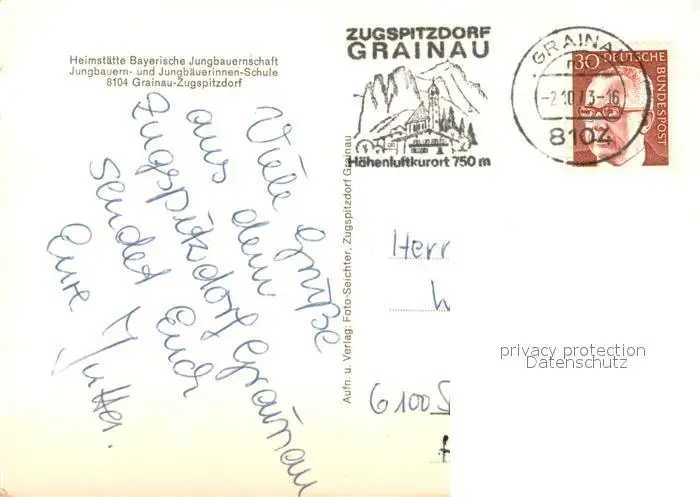 Heimstätte Bayerische Jungbauernschaft
Jungbauern- und Jungbäuerinnen-Schule
8104 Grainau-Zugspitzdorf
ZUGSPITZDORF
GRAINAU
Höhenluftkurort 750 m
GRAINAU
-2.10.73-16
8104
30 DEUTSCHE
BUNDESPOST
Viele Grüße
aus dem
Zugspitzdorf Grainau
sendet Euch
Eure Jutta.
Aufn. u. Verlag: Foto-Seichter, Zugspitzdorf Grainau
Herr
6100
privacy protection
Datenschutz